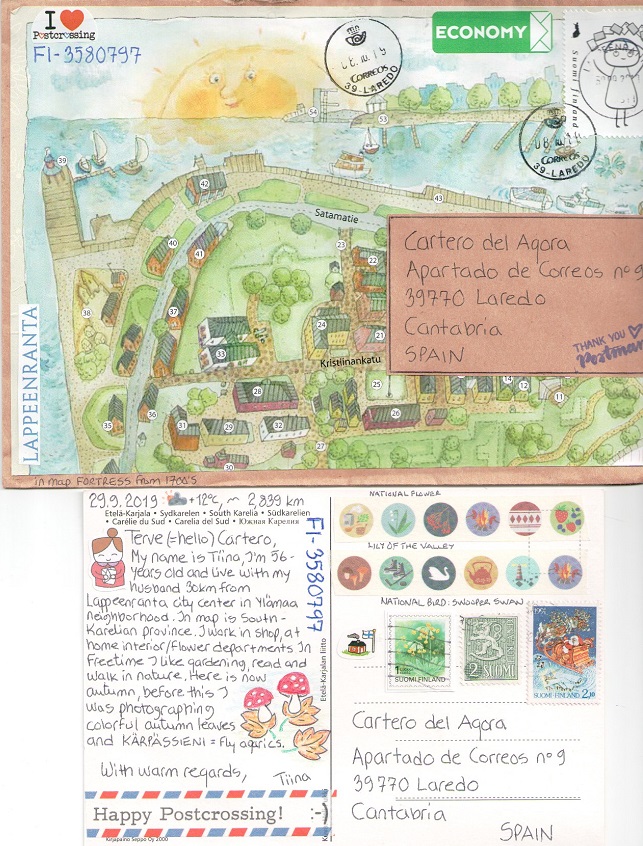 I ❤
Postcrossing
FI-3580797
ECONOMY
Suomi Finland
CORREOS
39-LAREDO
CORREOS
39-LAREDO
54
53
39
42
43
Satamatie
40
41
23
22
38
37
24
21
33
Kristiinankatu
28
25
14
12
11
36
35
31
29
32
26
27
30
LAPPEENRANTA
Cartero del Agora
Apartado de Correos nº 9
39770 Laredo
Cantabria
SPAIN
THANK YOU ♡
Postman
in map FORTRESS from 1700's
29.9.2019 +12°C, ~ 2,839 km
Etelä-Karjala • Sydkarelen • South Karelia • Südkarelien
• Carélie du Sud • Carelia del Sud • Южная Карелия
Terve (=hello) Cartero,
My name is Tiina, I'm 56-
years old and live with my
husband 30km from
Lappeenranta city center in Ylämaa
neighborhood. In map is South-
Karelian province. I work in shop, at
home interior/flower departments. In
Freetime I like gardening, read and
walk in nature. Here is now
autumn, before this I
was photographing
colorful autumn leaves
and KÄRPÄSSIENI = Fly agarics.
With warm regards,
Tiina
Happy Postcrossing! :-)
Kirjapaino Seppo Oy 2000
FI-3580797
Etelä-Karjalan liitto
NATIONAL FLOWER
LILY OF THE VALLEY
NATIONAL BIRD: SWOOPER SWAN
SUOMI-FINLAND
2 SUOMI
1991
SUOMI-FINLAND 2,10
Cartero del Agora
Apartado de Correos nº 9
39770 Laredo
Cantabria
SPAIN